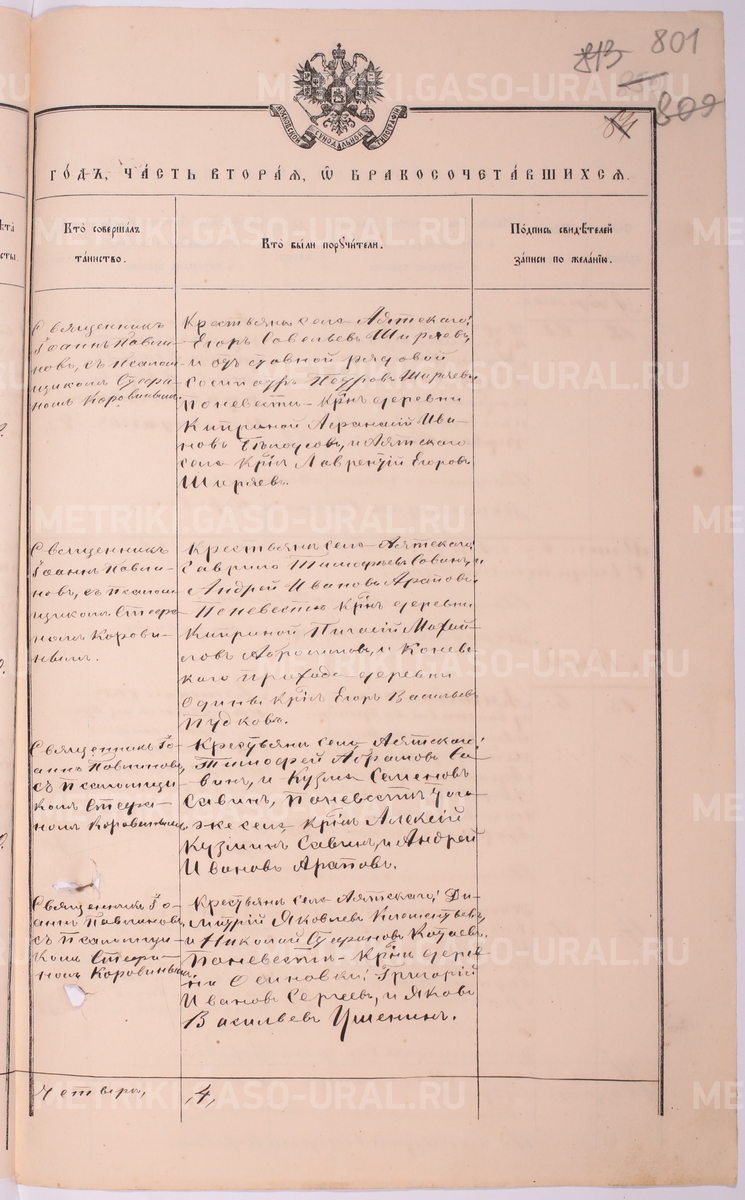 813 801
809
МОСКОВСКОЙ СѴНОДАЛЬНОЙ ТИПОГРАФІИ
ГО́ДЪ, ЧА́СТЬ ВТОРА́Я, Ѡ҆ БРАКОСОЧЕТА́ВШИХСЯ.
Кто̀ соверша́лъ
та́инство.
Кто̀ бы́ли порꙋчи́тели.
По́дпись свидѣ́телей
за́писи по жела́нїю.
Священникъ
Іоаннъ Павли-
новъ, съ псалом-
щикомъ Стефа-
номъ Коровинымъ
Крестьяны села Аятскаго:
Егоръ Савельевъ Ширяевъ,
и отставной рядовой
Петровъ Ширяевъ
Поневесте - Крн. деревни
Киприной Афанасій Ива-
новъ и Аятскаго
села Крнъ Лаврентій Егоровъ
Ширяевъ.
Священникъ
Іоаннъ Павли-
новъ, съ псалом-
щикомъ Стефа-
номъ Корови-
нымъ.
Крестьяны села Аятскаго:
Гаврило Тимофеевъ Савинъ, и
Андрей Ивановъ Араповъ.
Поневестою Крн. деревни
Киприной Михай-
ловъ и Конев-
скаго прихода деревни
Одины Крнъ Егоръ Васильевъ
Пудковъ.
Священникъ Іо-
аннъ Павлиновъ,
съ Псаломщи-
комъ Стефа-
номъ Коровинымъ
Крестьяны села Аятскаго:
Тимофей Абрамовъ Са-
винъ, и Кузма Семеновъ
Савинъ, Поневесте того
же села Крнъ Алексій
Кузминъ Савинъ, и Андрей
Ивановъ Араповъ.
Священникъ Іо-
аннъ Павлиновъ,
съ Псаломщи-
комъ Стефа-
номъ Коровинымъ
Крестьяны села Аятскаго: Ди-
митрій Яковлевъ Климентьевъ,
и Николай Стефановъ Котаевъ.
Поневесте - Крн. дерев-
ни Осиновки: Григорій
Ивановъ Сергеевъ, и Яковъ
Васильевъ Ушенинъ.
Четверо, 4,
METRIKI.GASO-URAL.RU